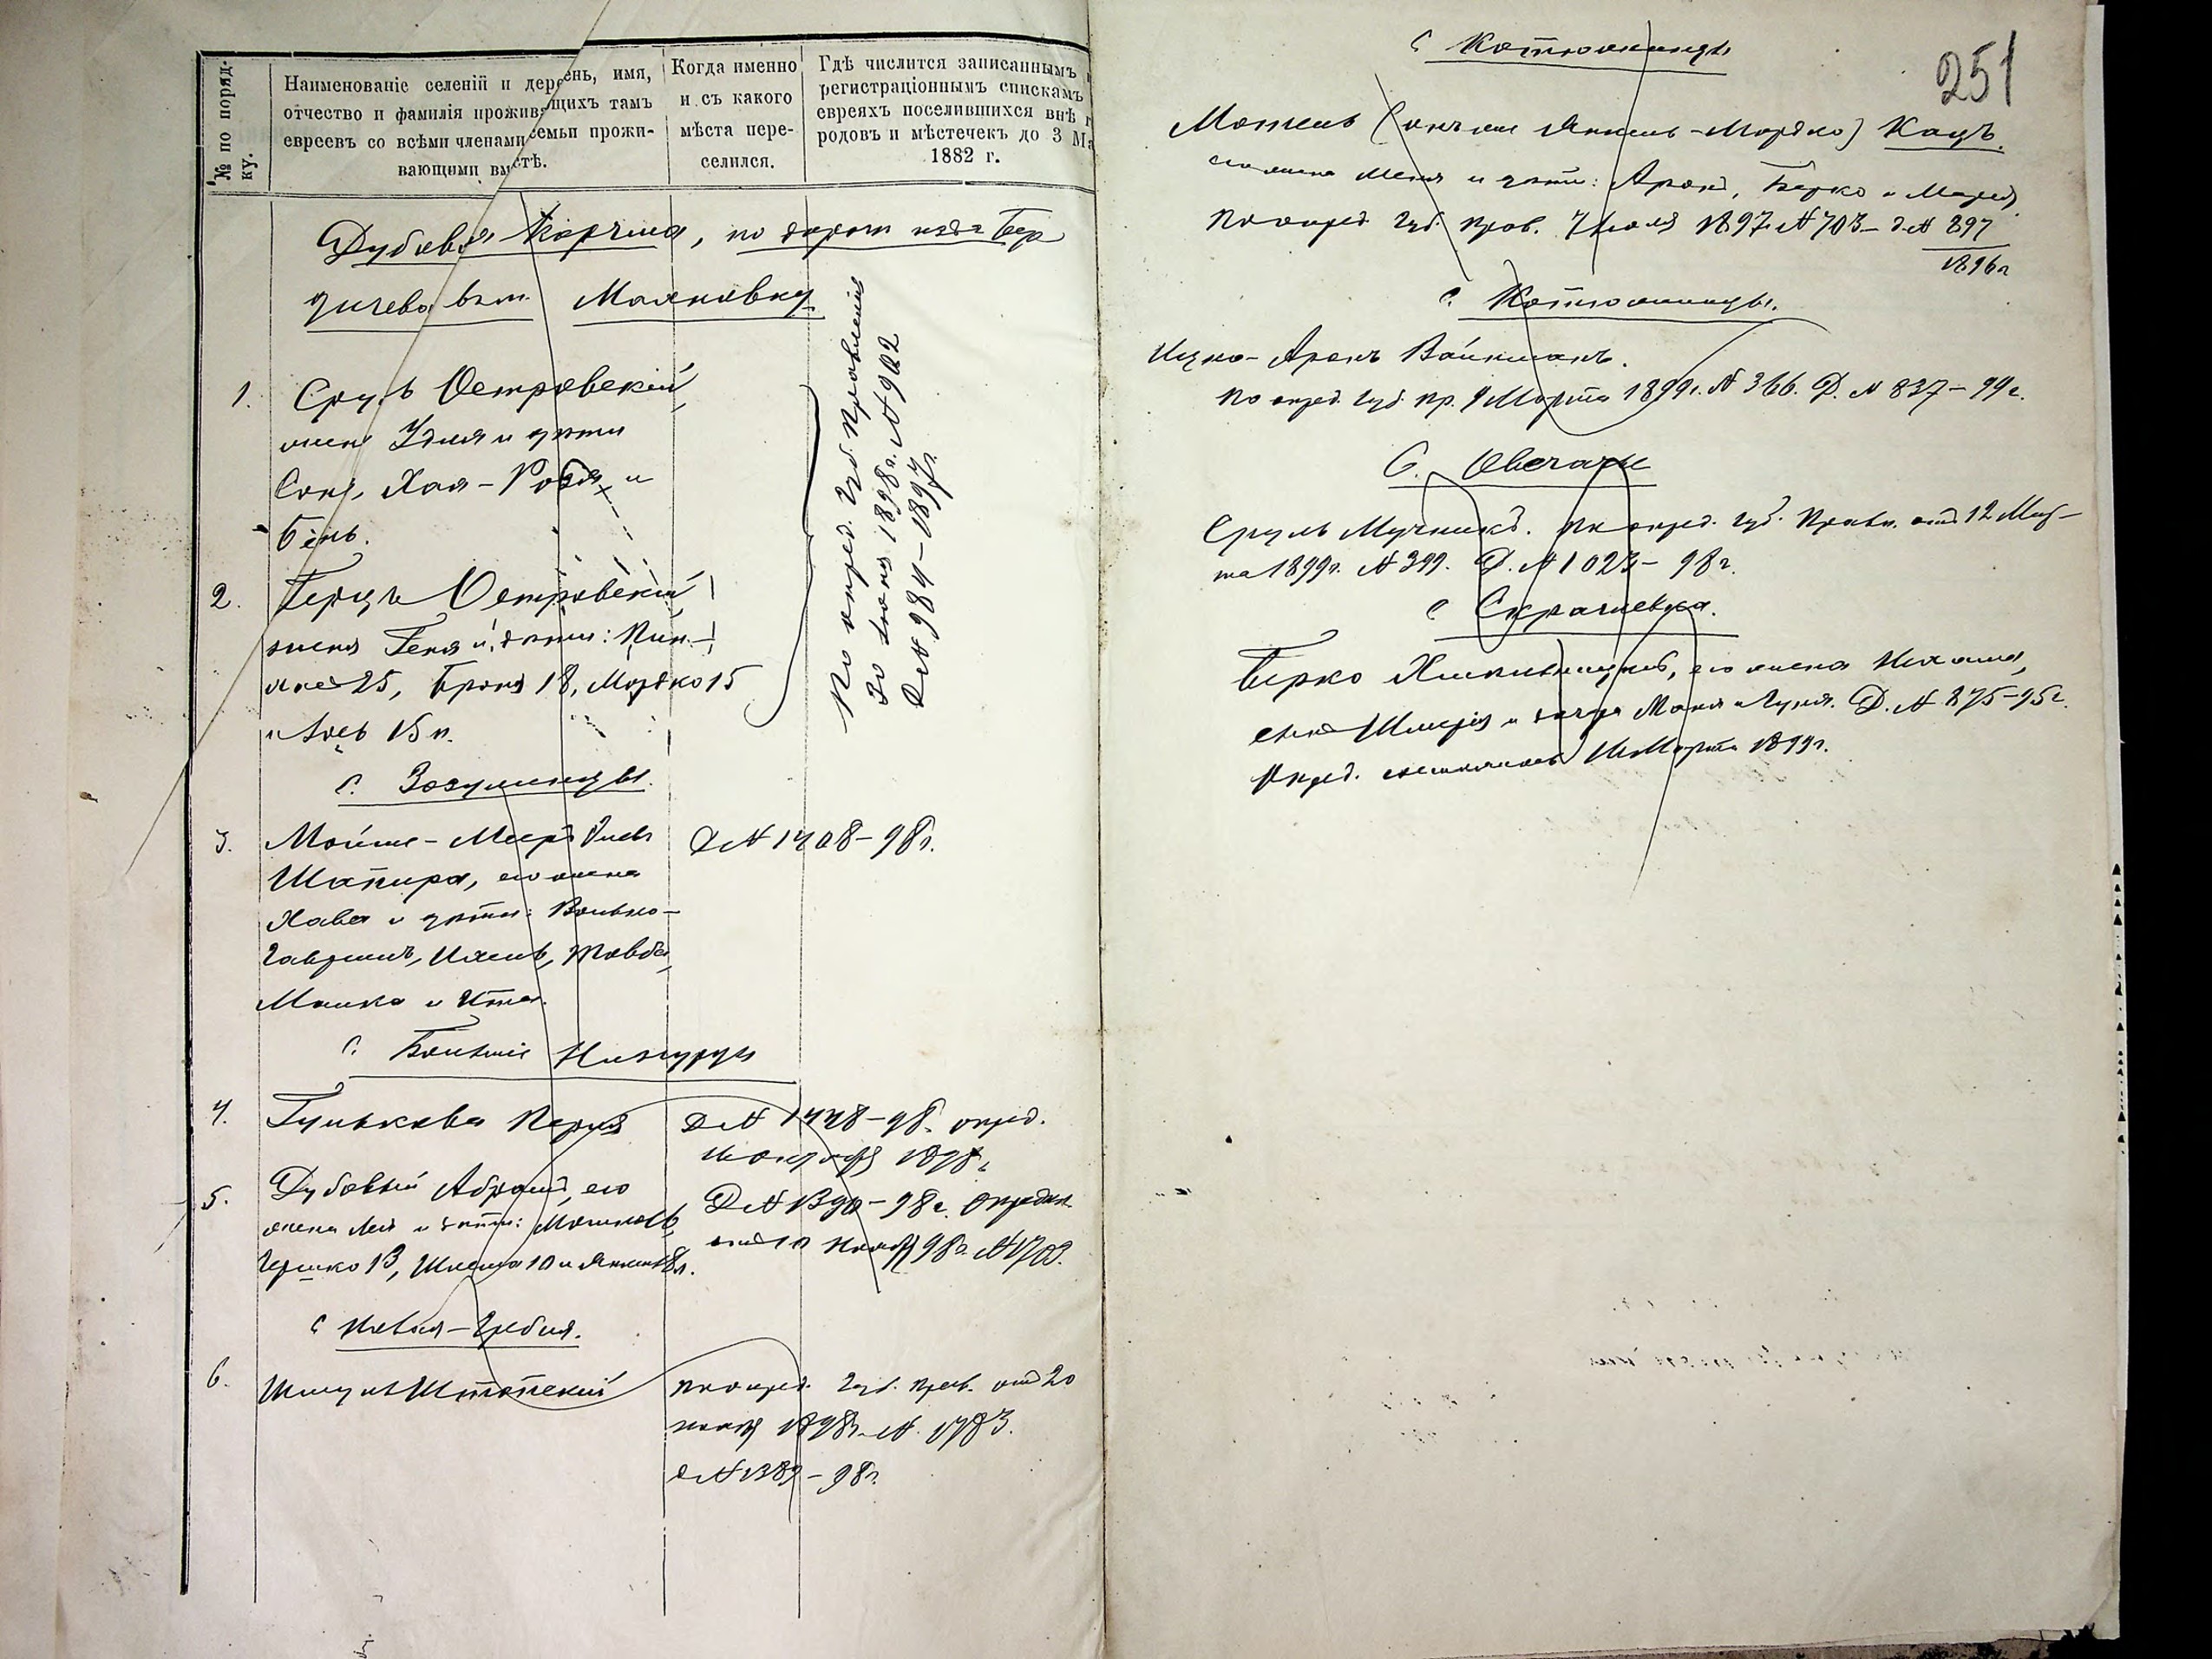 № по порядку.
Наименованіе селеній и деревень, имя,
отчество и фамилія проживающихъ тамъ
евреевъ со всѣми членами семьи прожи-
вающими вмѣстѣ.
Когда именно
и съ какого
мѣста пере-
селился.
Гдѣ числится записаннымъ
регистраціоннымъ спискамъ
евреяхъ поселившихся внѣ г
родовъ и мѣстечекъ до 3 Ма
1882 г.
Дубовая Корчма, по дорогѣ изъ Бер
дичева въ м. Махновку
1. Сруль Островскій,
жена Удля и дѣти
Хая - Ройза и
Бень.
2. Герцъ Островскій
жена Геня и дѣти:
25, 18, Мордко 15
и 15 л.
По опред. Губ. Правленія
30 Іюня 1898 г. № 902
Д № 984 - 1897 г.
с. Зозулинцы.
3. Мойше - Мееръ
Шапиро, его жена
Хава и дѣти: Волько -
Гавріилъ, Товба,
Малка и Ита.
Д № 1408 - 98 г.
с. Большіе Низгурцы
4. Гулькова Перля
Д № 1448 - 98. опред.
1898 г.
5. Дубовый Абрамъ, его
жена Лея и дѣти:
Гершко 13, Шлема 10 и Янкель 8 л.
Д № 1390 - 98 г. Опредѣл.
98 г. № 1703.
с Новая - Гребля.
6. Шмуль
По опред. Губ. Прав. отъ 20
1898 г. № 1783.
Д № 1389 - 98 г.
251
с Котюжинцы
Мошко (онъ же Янкель - Мордко) Кацъ.
жена и дѣти: Аронъ, Берко и
По опред. Губ. Прав. 7 Іюля 1897 № 703 - д № 897
1896 г
с. Котюжинцы.
Ицко - Аронъ Вайнманъ.
По опред. Губ. Пр. 9 Марта 1899 г. № 366. Д. № 837 - 99 г.
С. Овечаче
Сруль Мучникъ. По опред. Губ. Правл. отъ 12 Мар -
та 1899 г. № 399. Д. № 1023 - 98 г.
с Скраглевка.
Берко его жена
и дочери Маня и Д. № 875 - 95 г.
Опред. состоялось Марта 1899 г.